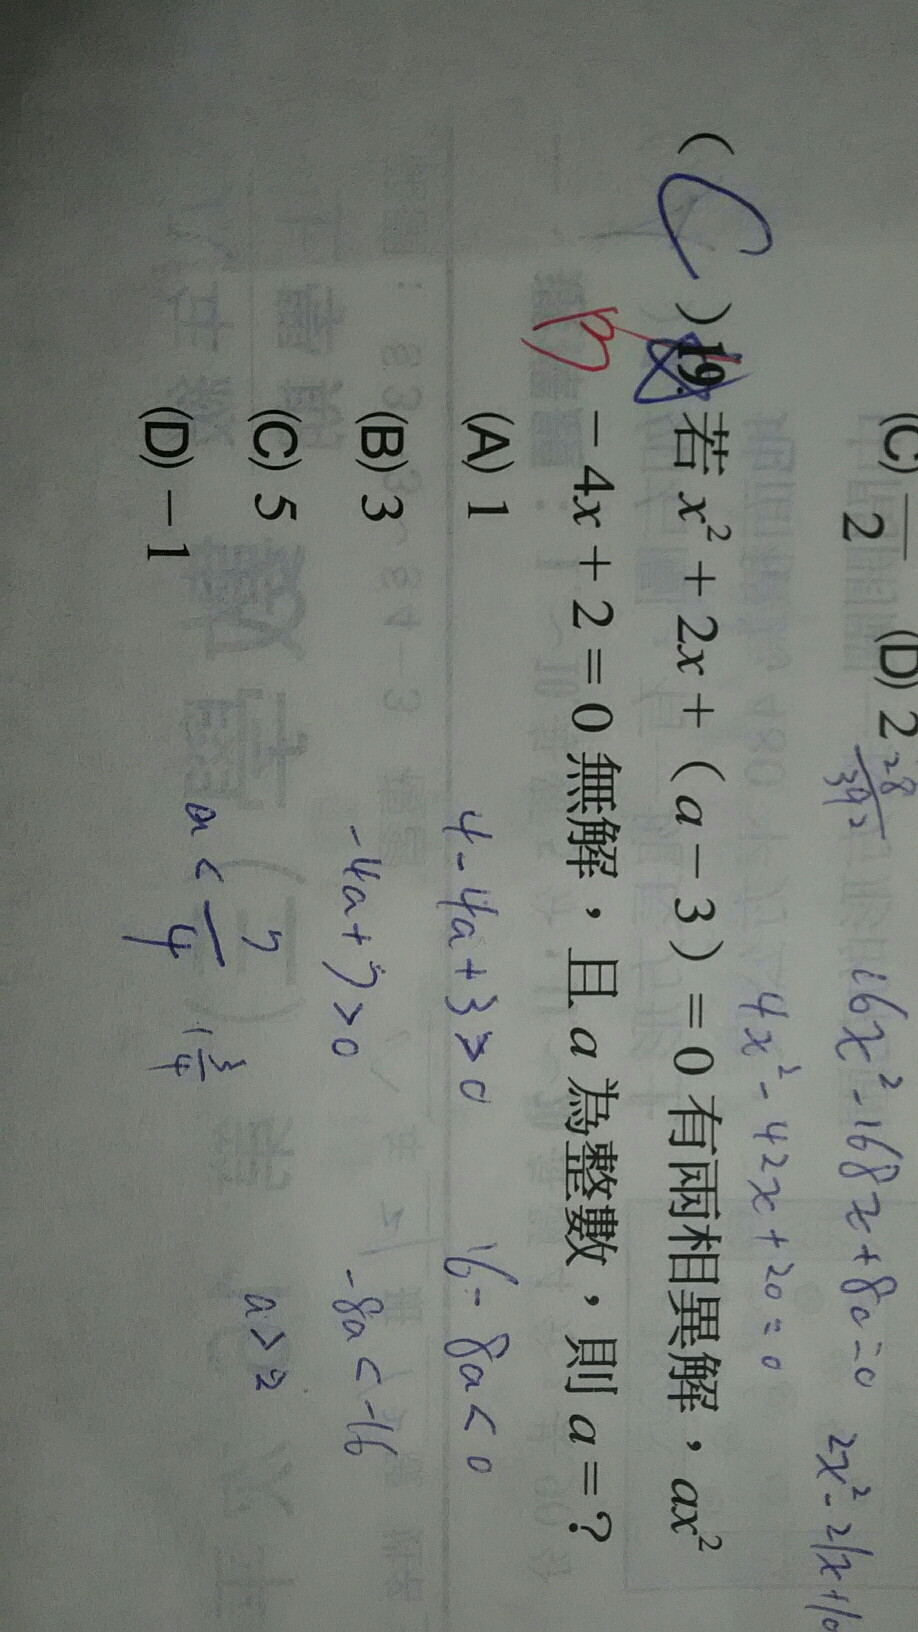 (C) —/2 (D) 2
28
392
16x² - 168x + 80 = 0
2x² - 21x + 10
4x² - 42x + 20 = 0
( C ) 19. 若 x² + 2x + ( a − 3 ) = 0 有兩相異解，ax²
B
− 4x + 2 = 0 無解，且 a 為整數，則 a = ?
(A) 1
4 - 4a + 3 > 0
16 - 8a < 0
(B) 3
-4a + 7 > 0
-8a < -16
(C) 5
a > 2
(D) −1
a < 7/4
1 3/4